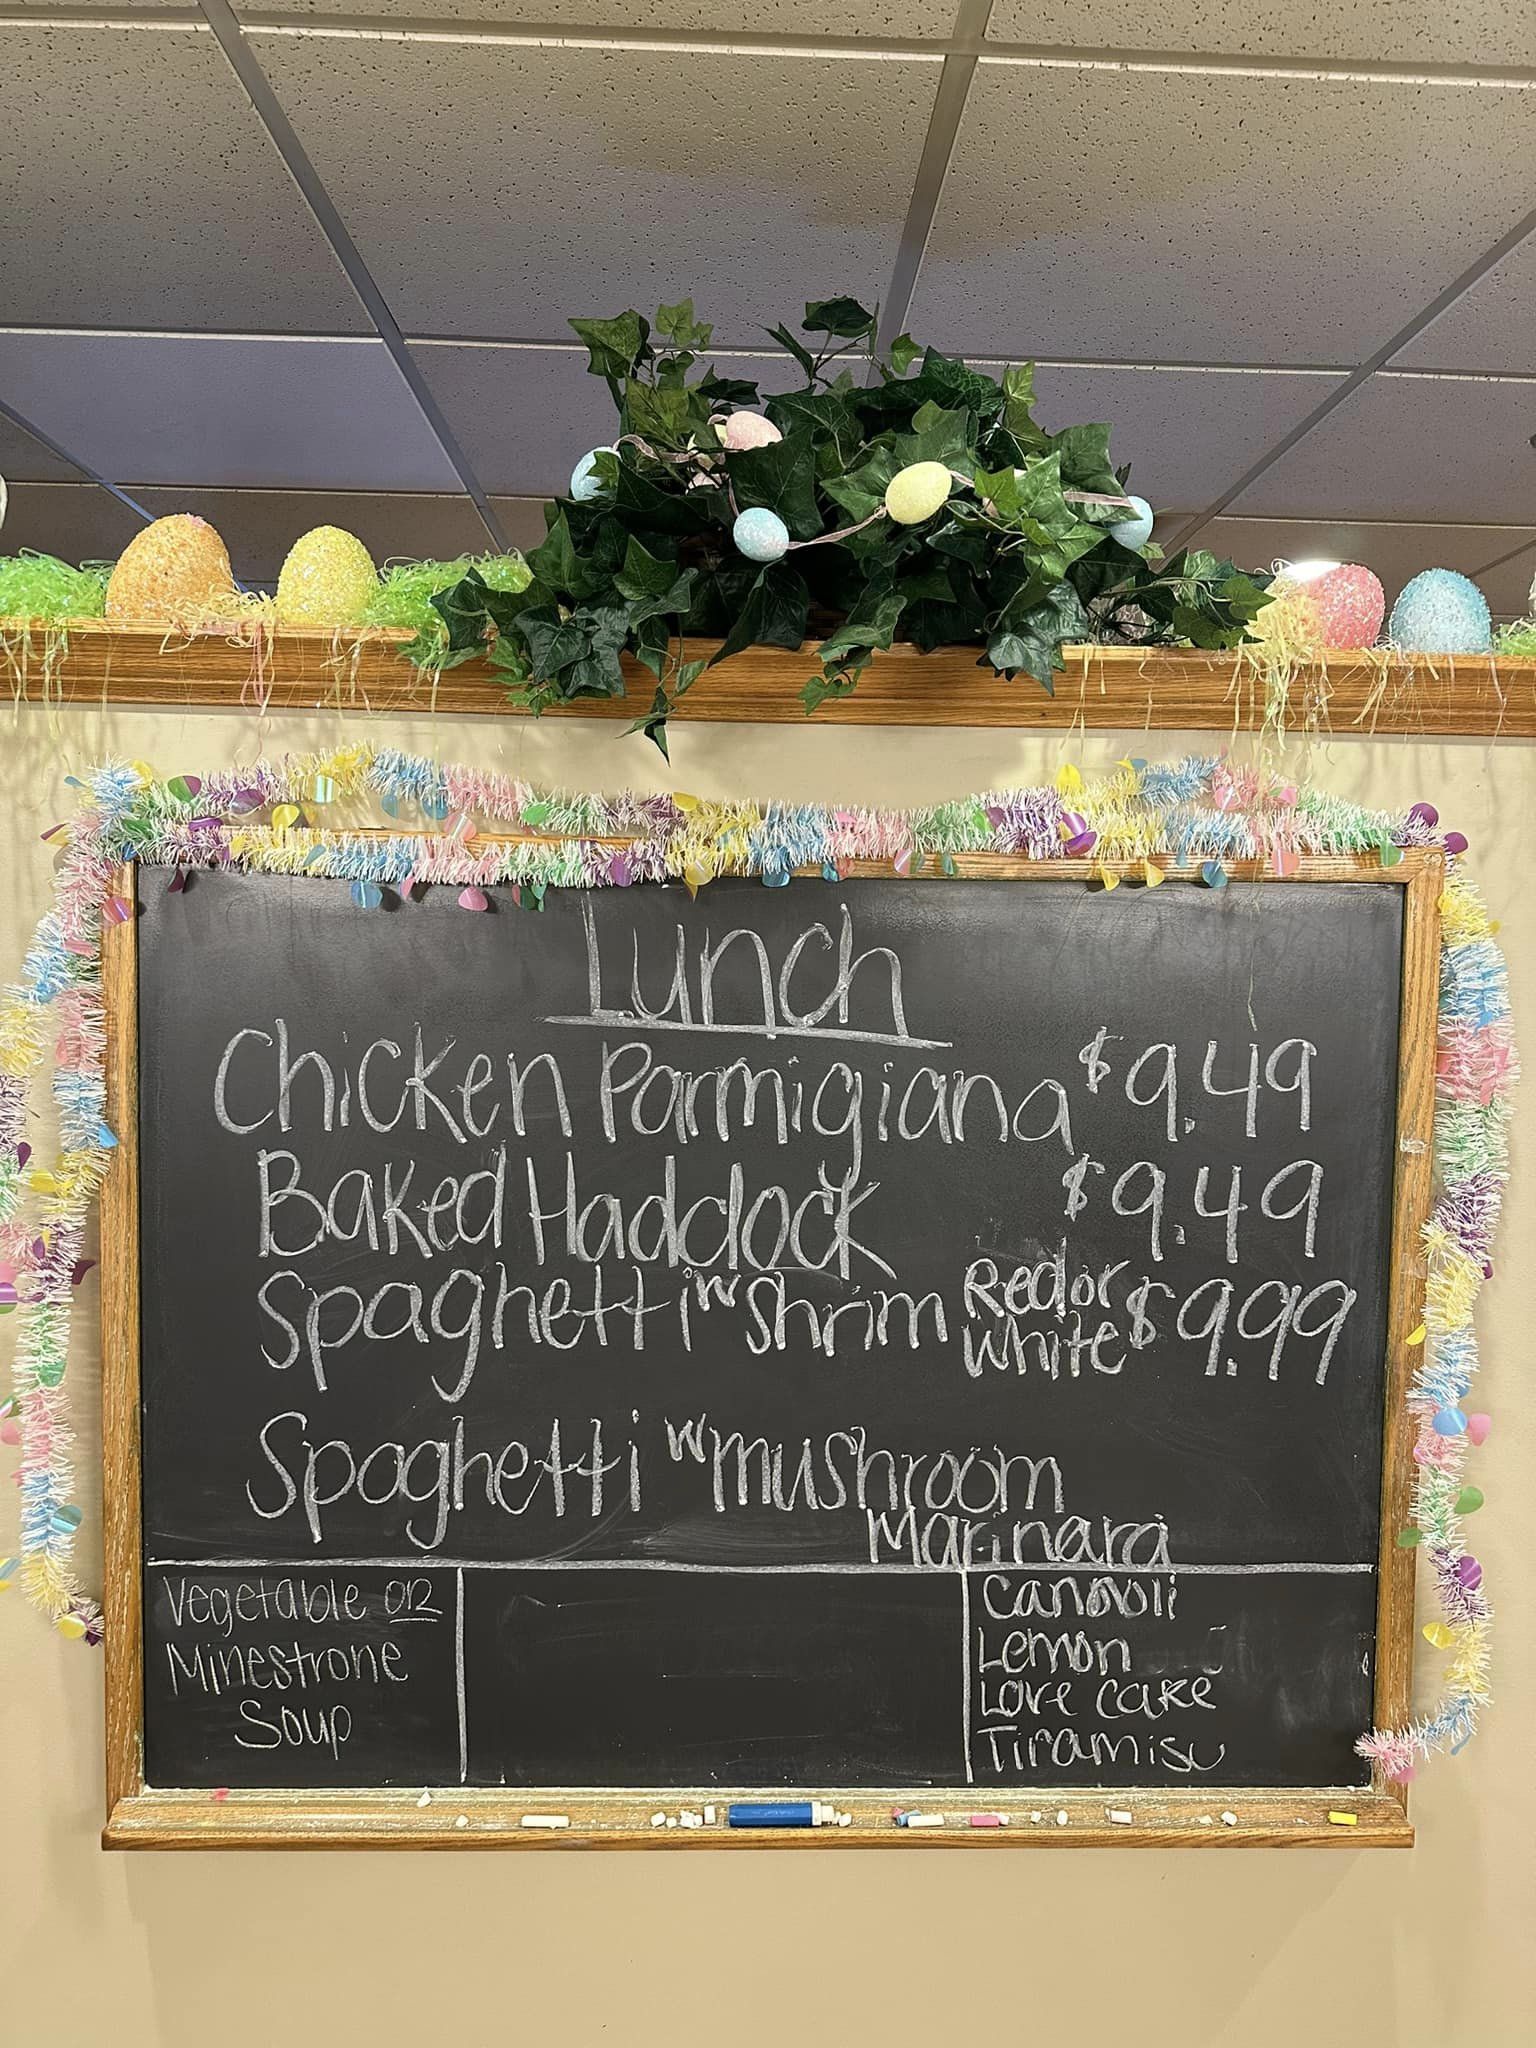 Lunch
Chicken Parmigiana $9.49
Baked Haddock $9.49
Spaghetti w shrim Red or White $9.99
Spaghetti w mushroom
Marinara
Vegetable or
Minestrone
Soup
Cannoli
Lemon
Love cake
Tiramisu